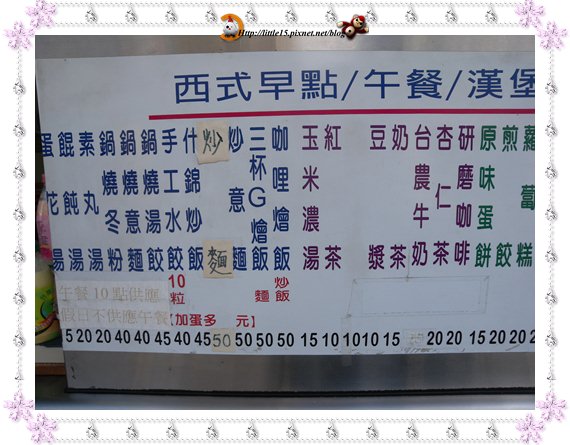 Http://little15.pixnet.net/blog
西式早點/午餐/漢堡
蛋花湯
餛飩湯
素丸湯
鍋燒冬粉
鍋燒意麵
鍋燒湯餃
手工水餃
10粒
什錦炒飯
炒麵
炒意麵
三杯G燴飯
麵
咖哩燴飯
炒飯
玉米濃湯
紅茶
豆漿
奶茶
台農牛奶
杏仁茶
研磨咖啡
原味蛋餅
煎餃
蘿蔔糕
午餐10點供應
假日不供應午餐
【加蛋多 元】
5 20 20 40 45 40 40 45 50 50 50 50 15 10 10 10 15 20 20 15 20 20